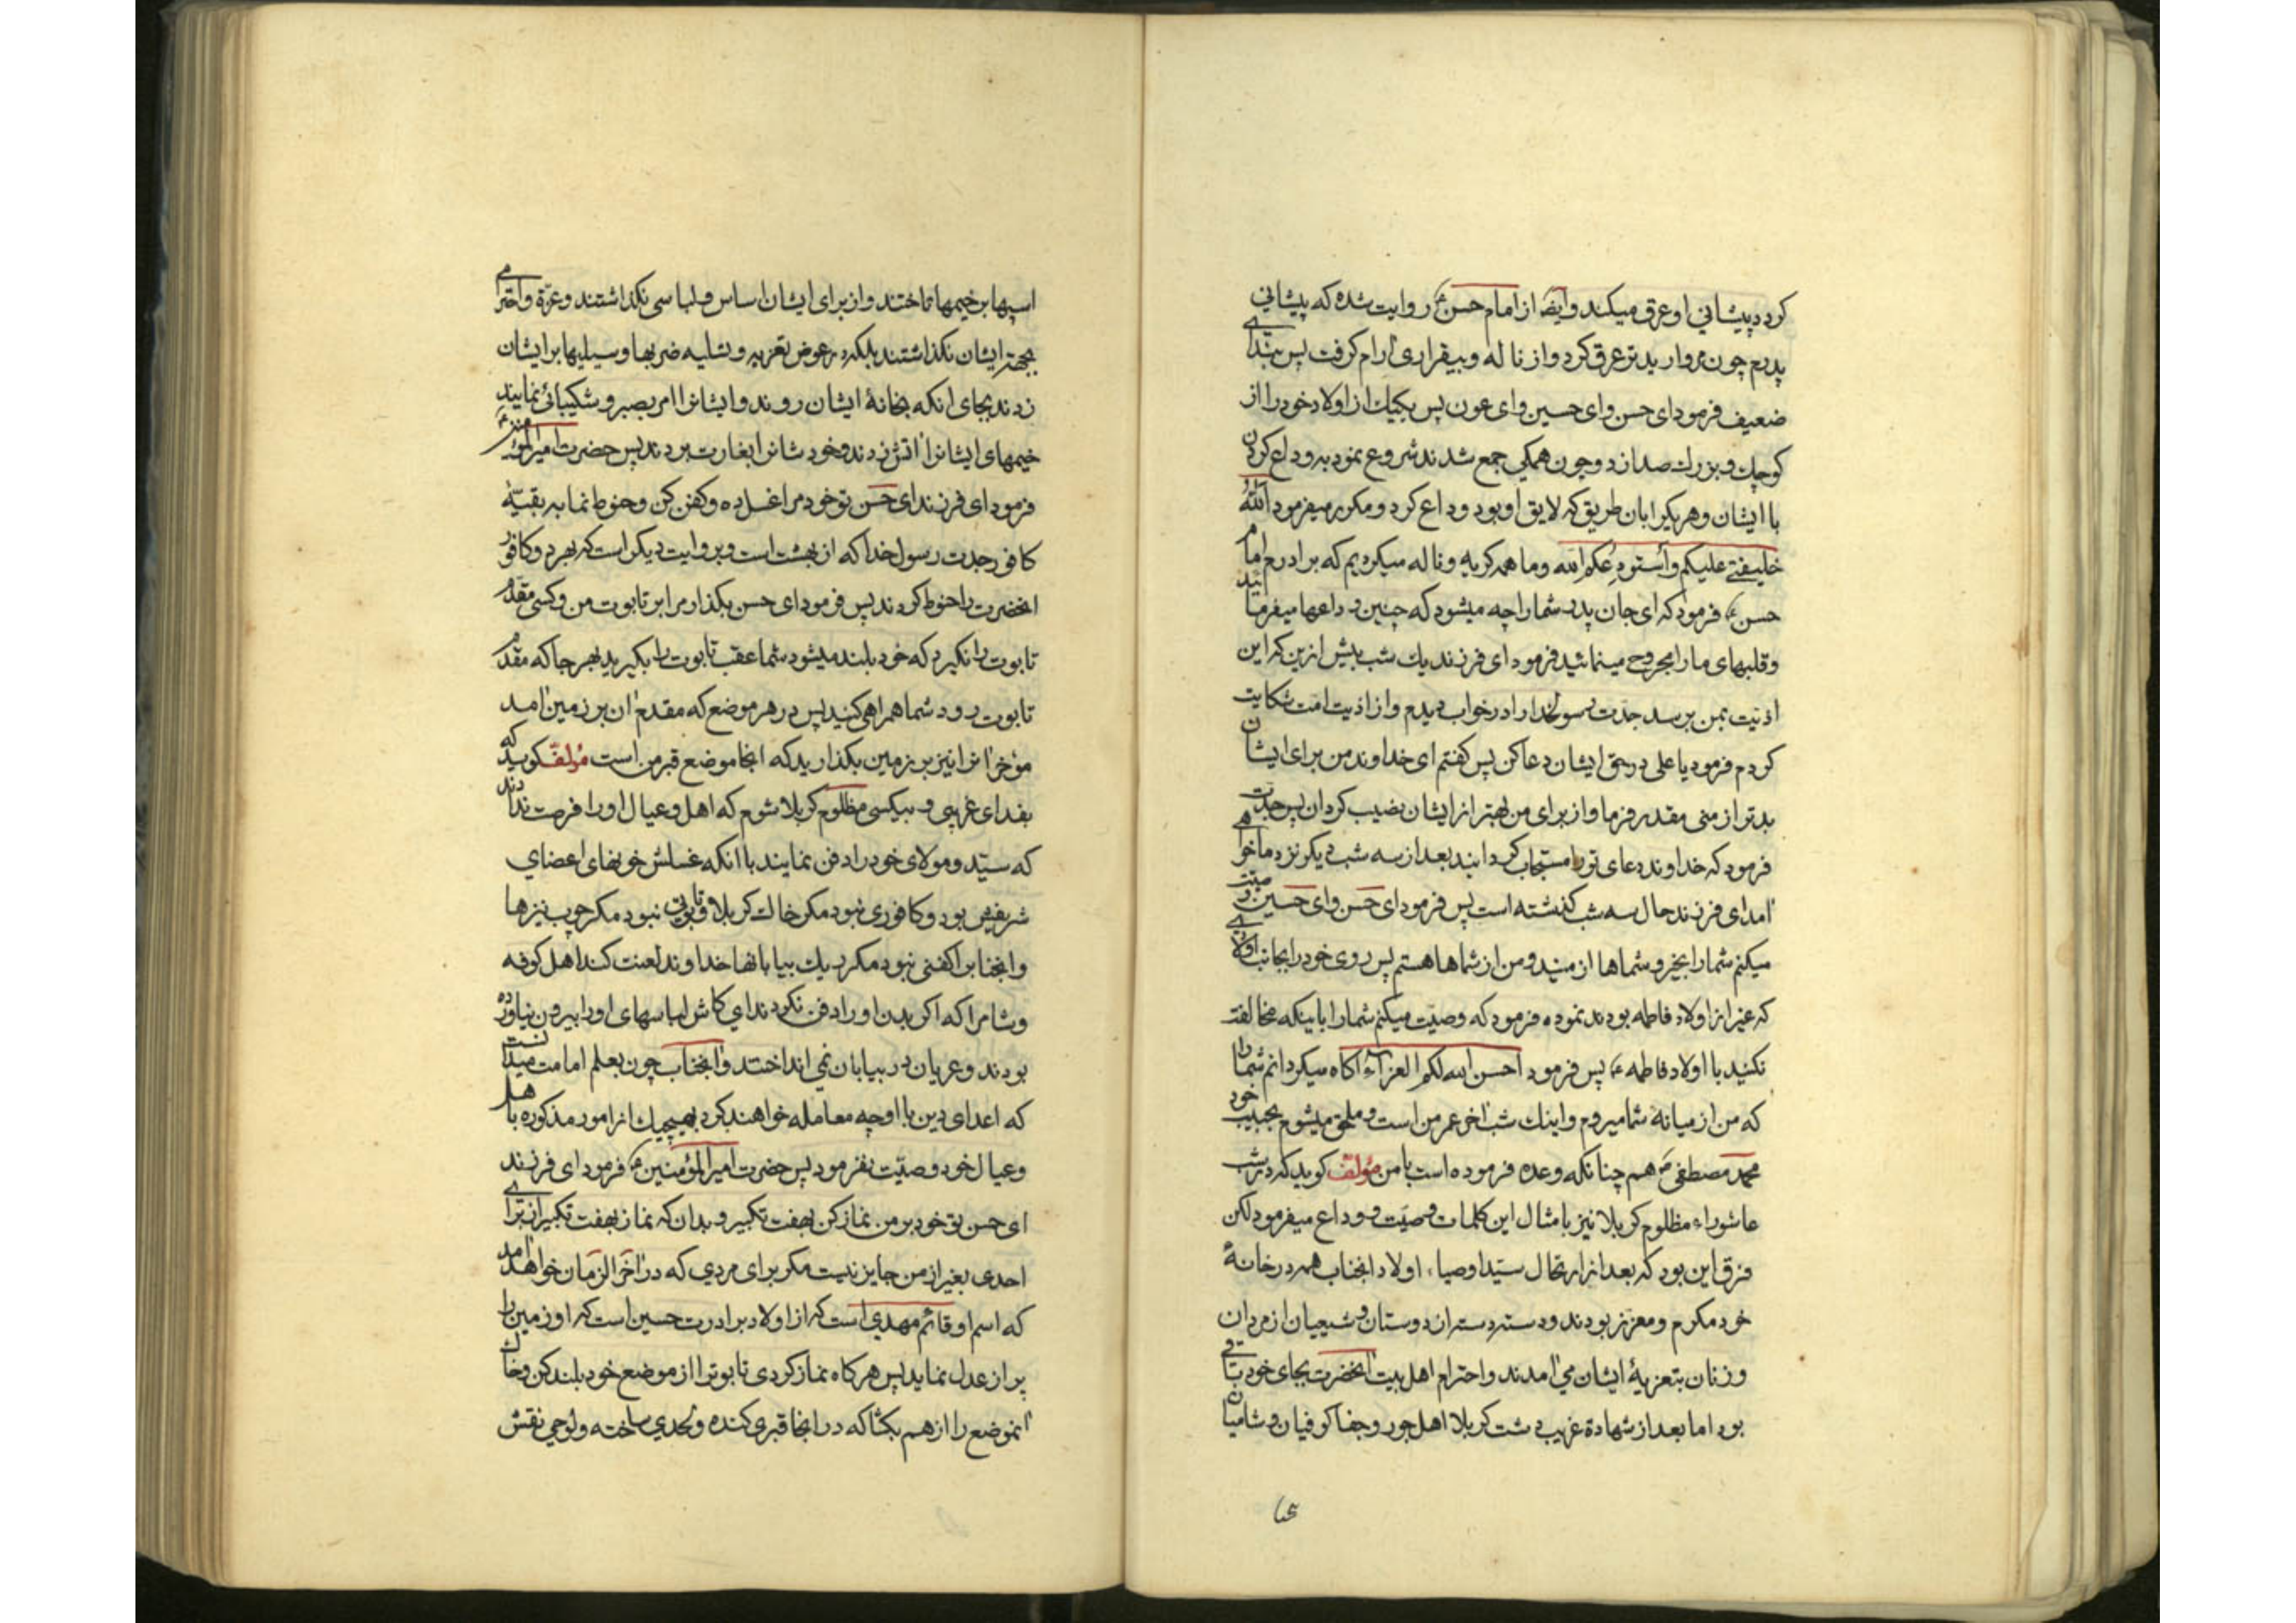 کرد پیشانی او عرق میکند وایضا از امام حسن ع روایت شده که پیشانی
پدرم چون مروارید تر عرق کرد و از ناله و بیقراری آرام گرفت پس بندای
ضعیف فرمود ای حسن وای حسین وای عون پس یکیک از اولاد خود را از
کوچک و بزرک صدا زد و چون همکی جمع شدند شروع نمود به وداع کردن
با ایشان و هر یکرا بان طریق که لایق او بود وداع کرد و مکرر میفرمود الله
خلیفتی علیکم و استودعکم الله و ما همه کریه و ناله میکردیم که برادرم امام
حسن ع فرمود که ای جان پدر شما را چه میشود که چنین وداعها میفرمائید
و قلبهای ما را مجروح مینمائید فرمود ای فرزند یک شب پیش ازین که این
اذیت بمن برسد جدت رسولخدا را در خواب دیدم و از اذیت امت شکایت
کردم فرمود یا علی در حق ایشان دعا کن پس کفتم ای خداوند من برای ایشان
بدتر از منی مقدر فرما و از برای من بهتر از ایشان نصیب کردان پس جدت
فرمود که خداوند دعای تو را مستجاب کردانید بعد از سه شب دیکر نزد ما خواهی
آمد ای فرزند حال سه شب کذشته است پس فرمود ای حسن وای حسین وصیت
میکنم شما را بخیر و شماها از منید و من از شماها هستم پس روی خود را بجانب اولادی
که غیر از اولاد فاطمه بودند نموده فرمود که وصیت میکنم شما را باینکه مخالفت
نکنید با اولاد فاطمه ع پس فرمود احسن الله لکم العزاء آکاه میکردانم شما را
که من از میانه شما میروم و اینک شب آخر عمر من است و ملحق میشوم بحبیب خود
محمد مصطفی ص هم چنانکه وعده فرموده است با من مؤلف کوید که در شب
عاشوراء مظلوم کربلا نیز بامثال این کلمات وصیت و وداع میفرمود لکن
فرق این بود که بعد از ارتحال سید اوصیاء اولاد انجناب همه در خانهٔ
خود مکرم و معزز بودند و دسته دسته از دوستان و شیعیان از مردان
و زنان بتعزیهٔ ایشان می آمدند و احترام اهل بیت آنحضرت بجای خود باقی
بود اما بعد از شهادة غریب دشت کربلا اهل جور و جفا کوفیان و شامیان
اسبها بر خیمها تاختند و از برای ایشان اساس و لباسی نکذاشتند و عزة و احترامی
بجهت ایشان نکذاشتند بلکه در عوض تعزیه و تسلیه ضربها و سیلیها بر ایشان
زدند بجای آنکه بخانهٔ ایشان روند و ایشانرا امر بصبر و شکیبائی نمایند
خیمهای ایشانرا آتش زدند و خودشانرا بغارت بردند پس حضرت امیرالمؤمنین ع
فرمود ای فرزند ای حسن تو خود مرا غسل ده و کفن کن و حنوط نما به بقیّهٔ
کافور جدت رسول خدا که از بهشت است و بروایت دیکر است که بهر دو کافور
انحضرت را حنوط کردند پس فرمود ای حسن بکذار مرا بر تابوت من و کسی مقدم
تابوت را نکیرد که خود بلند میشود شما عقب تابوت را بکیرید بهر جا که مقدم
تابوت رود شما همراهی کنید پس در هر موضع که مقدم آن بر زمین آمد
مؤخر آنرا نیز بر زمین بکذارید که انجا موضع قبر من است مؤلف کوید که
بفدای غریبی و بیکسی مظلوم کربلا شوم که اهل و عیال او را فرصت ندادند
که سید و مولای خود را دفن نمایند با آنکه غسلش خونهای اعضای
شریفش بود و کافوری نبود مکر خاک کربلا و تابوتی نبود مکر چوب نیزها
وانجنابرا کفنی نبود مکر ریک بیابانها خداوند لعنت کند اهل کوفه
و شام را که اکر بدن او را دفن نکردند ای کاش لباسهای او را بیرون نیاورده
بودند و عریان در بیابان نمی انداختند و انجناب چون بعلم امامت میدانست
که اعدای دین با او چه معامله خواهند کرد بهیچیک از امور مذکوره باهل
و عیال خود وصیّت نفرمود پس حضرت امیرالمؤمنین ع فرمود ای فرزند
ای حسن تو خود بر من نماز کن بهفت تکبیر و بدان که نماز بهفت تکبیر از برای
احدی بغیر از من جایز نیست مکر برای مردی که در آخر الزمان خواهد آمد
که اسم او قائم مهدی است که از اولاد برادرت حسین است که او زمین را
پر از عدل نماید پس هر کاه نماز کردی تابوترا از موضع خود بلند کن و خاک
آنموضع را از هم بکشا که در انجا قبری کنده و لحدی ساخته و لوحی نقش